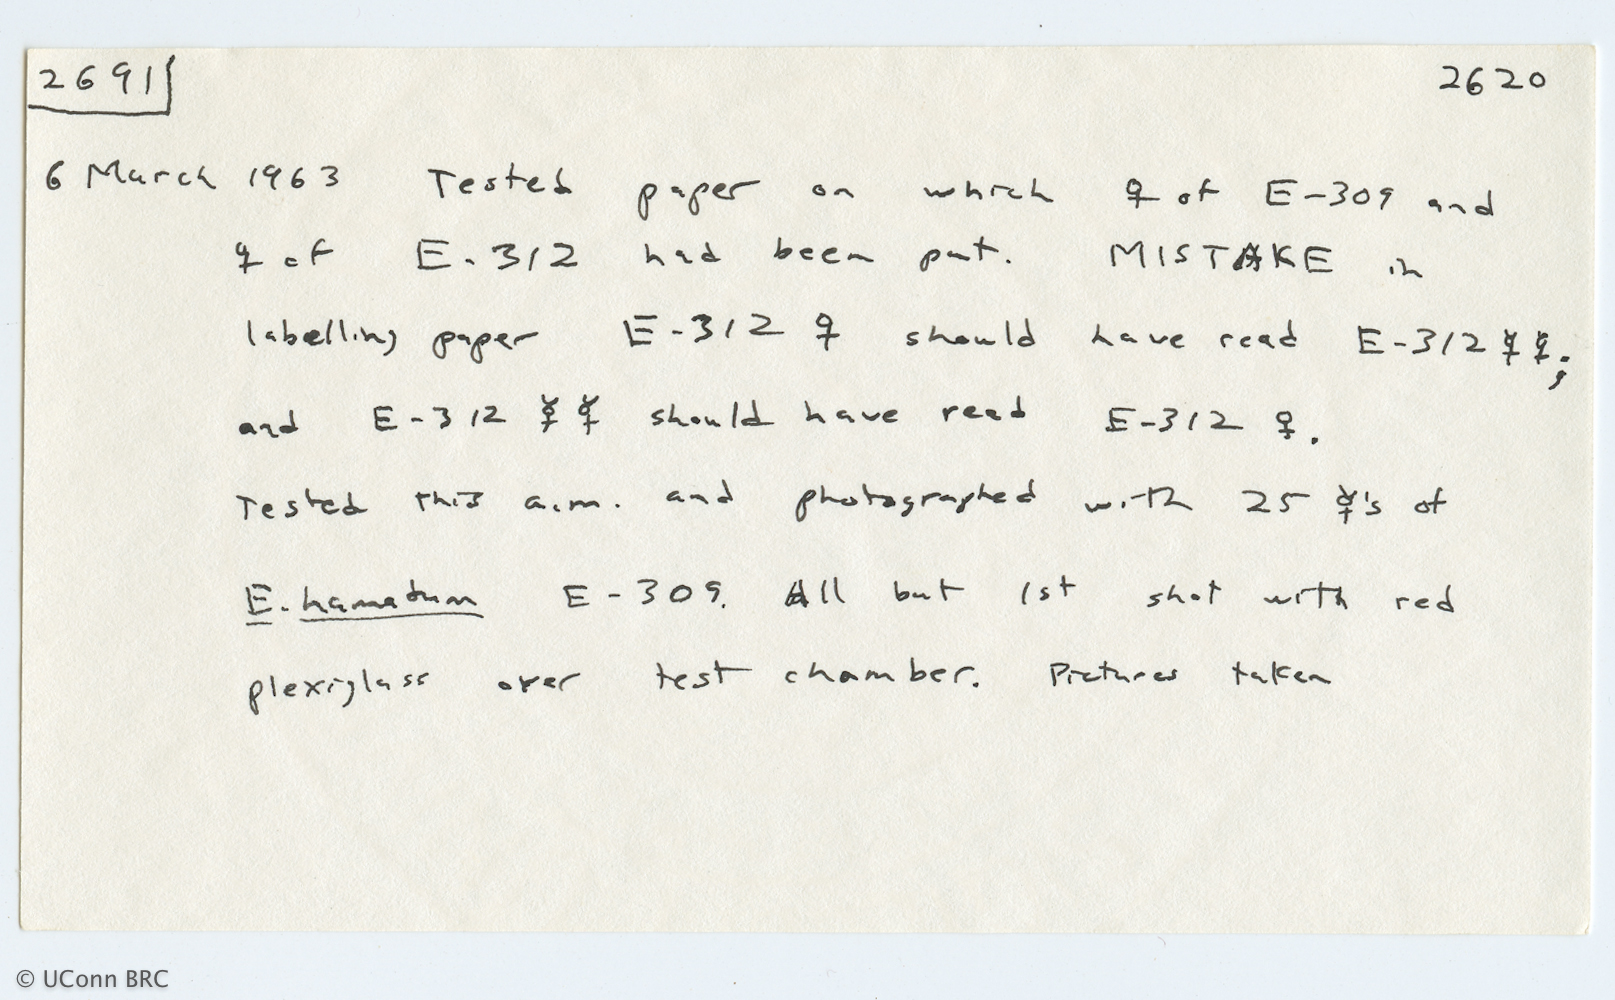 2691 2620
6 March 1963 Tested paper on which ♀ of E-309 and
♀ of E-312 had been put. MISTAKE in
labelling paper E-312 ♀ should have read E-312 ☿ ☿;
and E-312 ☿ ☿ should have read E-312 ♀.
Tested this a.m. and photographed with 25 ☿'s of
E. hamatum E-309. All but 1st shot with red
plexiglass over test chamber. Pictures taken
© UConn BRC